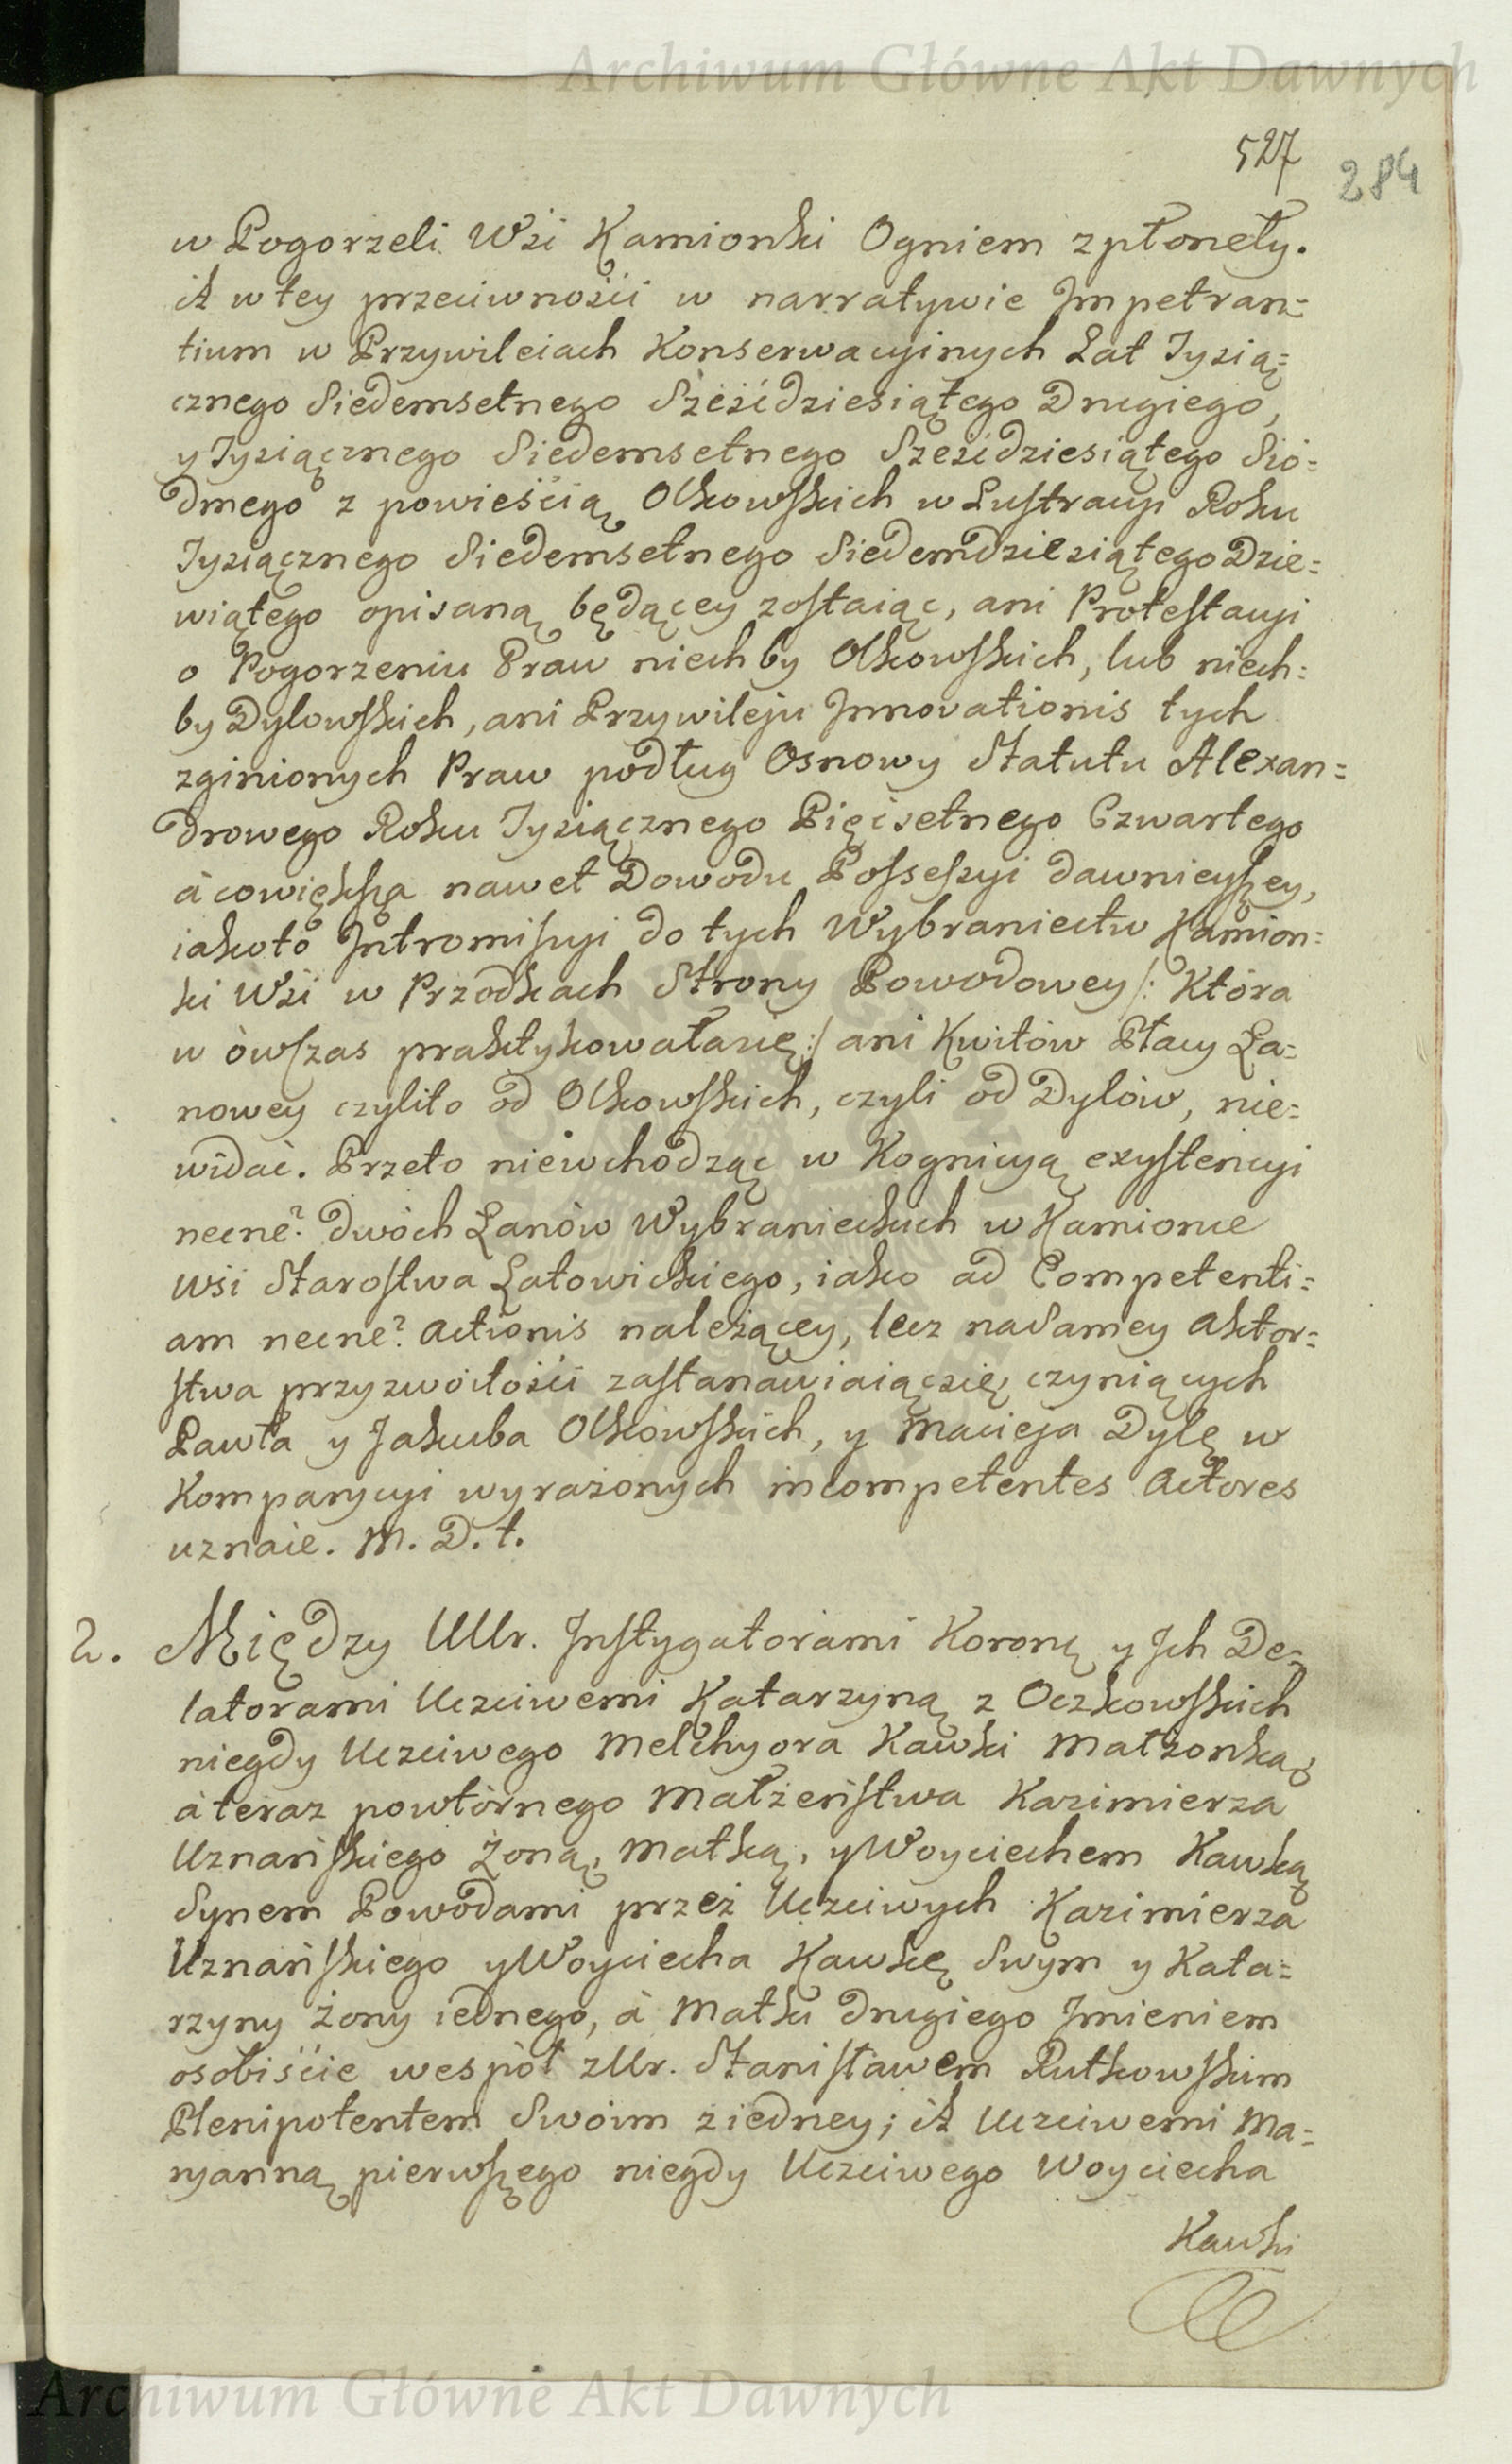 Archiwum Główne Akt Dawnych
527
284
w Pogorzeli Wśi Kamionki Ogniem zpłoneły.
A w tey przeciwności w narratywie Impetran=
tium w Przywileiach Konserwacyinych Lat Tysią=
cznego Siedemsetnego Sześćdziesiątego Drugiego,
y Tysiącznego Siedemsetnego Sześćdziesiątego Sió=
dmego z powieścią Olkowskich w Lustracyi Roku
Tysiącznego Siedemsetnego Siedemdziesiątego Dzie=
wiątego opisaną będącey zostaiąc, ani Protestacyi
o Pogorzeniu Praw niechby Olkowskich, lub niech=
by Dylowskich, ani Przywileju Innovationis tych
zginionych Praw podług Osnowy Statutu Alexan=
drowego Roku Tysiącznego Pięćsetnego Czwartego
à cowiększa nawet Dowodu Possessyi dawnieyszey,
iakoto Intromissyi do tych Wybraniectw Kamion=
ki Wśi w Przodkach Strony Powodowey /: Która
w ówszas praktykowałasię :/ ani Kwitów Płacy Ła=
nowey czylito od Olkowskich, czyli od Dylów, nie=
widać. Przeto niewchodząc w Kognicyą exystencyi
necne? dwóch Łanów Wybranieckich w Kamionce
wśi Starostwa Latowickiego, iako ad Competenti=
am necne? Actionis należącey, lecz naSamey Aktor=
stwa przyzwoitości zastanawiaiącsię, czyniących
Pawła y Jakuba Olkowskich, y Macieja Dylę w
Komparycyi wyrażonych incompetentes Actores
uznaie. M. D. t.
2. Między UUr. Instygatorami Koronę y Ich De=
latorami Uczciwemi Katarzyną z Oczkowskich
niegdy Uczciwego Melchyora Kawki Małżonką,
à teraz powtórnego Małżeństwa Kazimierza
Uznańskiego Żoną, Matką, y Woyciechem Kawką
Synem Powodami przez Uczciwych Kazimierza
Uznańskiego y Woyciecha Kawkę Swym y Kata=
rzyny Żony iednego, à Matki drugiego Imieniem
osobiście wespół z Ur. Stanisławem Rutkowskim
Plenipotentem Swoim z iedney; A Uczciwemi Ma=
ryanną pierwszego niegdy Uczciwego Woyciecha
Kawki
Archiwum Główne Akt Dawnych